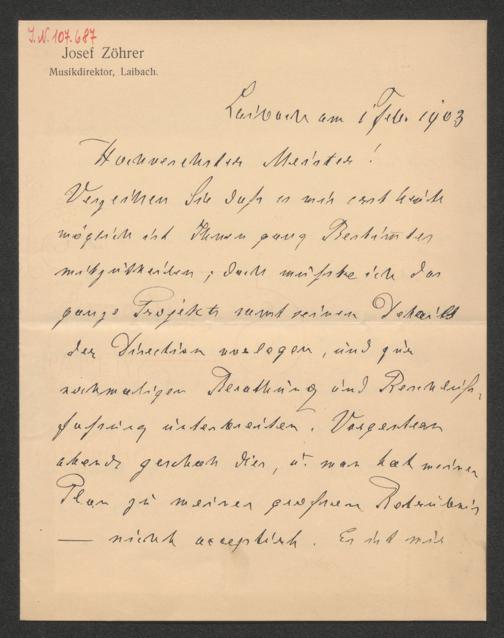 J.N. 107.687
Josef Zöhrer
Musikdirektor, Laibach.
Laibach am 1 Feb. 1903
Hochverehrter Meister!
Verzeihen Sie daß es mir erst heute
möglich ist Ihnen ganz Bestimtes
mitzutheilen; doch mußte ich das
ganze Projekt samt seinen Details
der Direction vorlegen, und zur
nochmaligen Berathung und Beschluß-
faßung unterbreiten. Vorgestern
abends geschah dies, u. man hat meinen
Plan zu meiner großen Betrübnis
— nicht acceptirt. Es ist mir